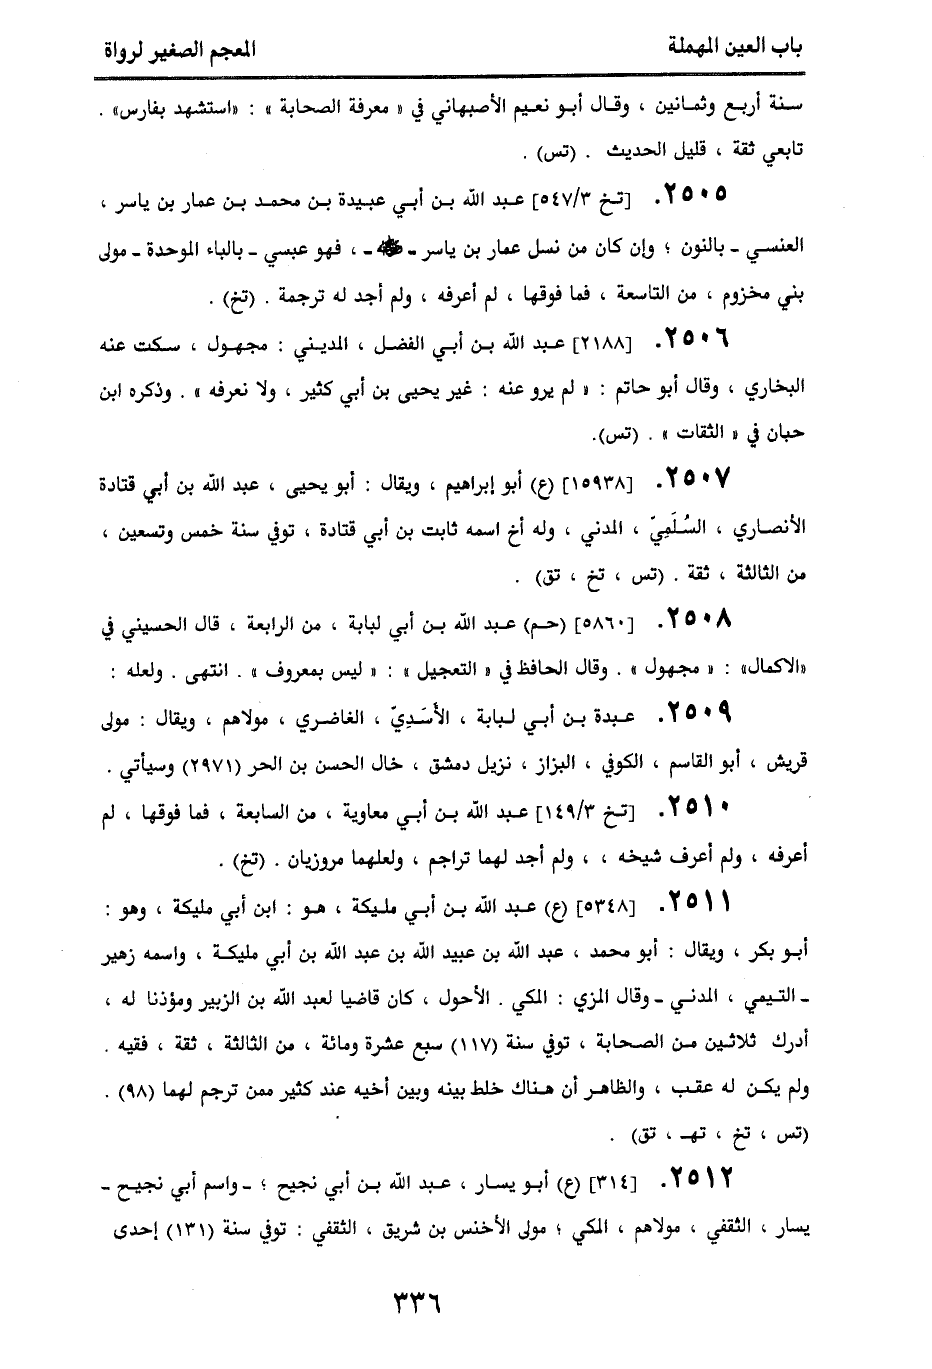 باب العين المهملة
المعجم الصغير لرواة
سنة أربع وثمانين ، وقال أبو نعيم الأصبهاني في « معرفة الصحابة » : «استشهد بفارس» .
تابعي ثقة ، قليل الحديث . (تس) .
٢٥٠٥. [تخ ٥٤٧/٣] عبد الله بن أبي عبيدة بن محمد بن عمار بن ياسر ،
العنسي ـ بالنون ؛ وإن كان من نسل عمار بن ياسر ـ ـ ، فهو عبسي ـ بالباء الموحدة ـ مولى
بني مخزوم ، من التاسعة ، فما فوقها ، لم أعرفه ، ولم أجد له ترجمة . (تخ) .
٢٥٠٦. [٢١٨٨] عبد الله بن أبي الفضل ، المديني : مجهول ، سكت عنه
البخاري ، وقال أبو حاتم : « لم يرو عنه : غير يحيى بن أبي كثير ، ولا نعرفه » . وذكره ابن
حبان في « الثقات » . (تس).
٢٥٠٧. [١٥٩٣٨] (ع) أبو إبراهيم ، ويقال : أبو يحيى ، عبد الله بن أبي قتادة
الأنصاري ، السُلَمِيّ ، المدني ، وله أخ اسمه ثابت بن أبي قتادة ، توفي سنة خمس وتسعين ،
من الثالثة ، ثقة . (تس ، تخ ، تق) .
٢٥٠٨. [٥٨٦٠] (حم) عبد الله بن أبي لبابة ، من الرابعة ، قال الحسيني في
«الاكمال» : « مجهول » . وقال الحافظ في « التعجيل » : « ليس بمعروف » . انتهى . ولعله :
٢٥٠٩. عبدة بن أبي لبابة ، الأَسَدِيّ ، الغاضري ، مولاهم ، ويقال : مولى
قريش ، أبو القاسم ، الكوفي ، البزاز ، نزيل دمشق ، خال الحسن بن الحر (٢٩٧١) وسيأتي .
٢٥١٠. [تخ ١٤٩/٣] عبد الله بن أبي معاوية ، من السابعة ، فما فوقها ، لم
أعرفه ، ولم أعرف شيخه ، ، ولم أجد لهما تراجم ، ولعلهما مروزيان . (تخ) .
٢٥١١. [٥٣٤٨] (ع) عبد الله بن أبي مليكة ، هو : ابن أبي مليكة ، وهو :
أبو بكر ، ويقال : أبو محمد ، عبد الله بن عبيد الله بن عبد الله بن أبي مليكة ، واسمه زهير
ـ التيمي ، المدني ـ وقال المزي : المكي . الأحول ، كان قاضيا لعبد الله بن الزبير ومؤذنا له ،
أدرك ثلاثين من الصحابة ، توفي سنة (١١٧) سبع عشرة ومائة ، من الثالثة ، ثقة ، فقيه .
ولم يكن له عقب ، والظاهر أن هناك خلط بينه وبين أخيه عند كثير ممن ترجم لهما (٩٨) .
(تس ، تخ ، تهـ ، تق) .
٢٥١٢. [٣١٤] (ع) أبو يسار ، عبد الله بن أبي نجيح ؛ ـ واسم أبي نجيح ـ
يسار ، الثقفي ، مولاهم ، المكي ؛ مولى الأخنس بن شريق ، الثقفي : توفي سنة (١٣١) إحدى
٣٣٦